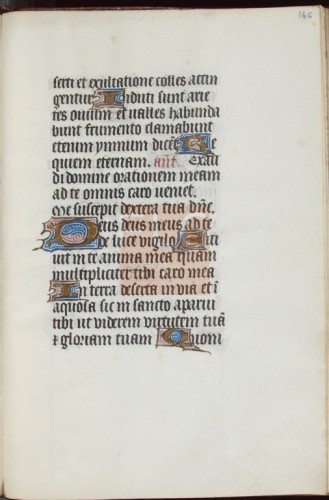 146
serti et exultatione colles accin
gentur Induti sunt arie
tes ovium et valles habunda
bunt frumento clamabunt
etenim ymnum dicẽt Re
quiem eternam. Añt. Exau
di domine orationem meam
ad te omnis caro veniet.
Me suscepit dextera tua dñe.
Deus deus meus ad te
de luce vigilo Siti
uit in te anima mea quam
multipliciter tibi caro mea
In terra deserta in via et ĩ
aquosa sic in sancto aparui
tibi ut viderem virtutem tuã
et gloriam tuam Q̃oni